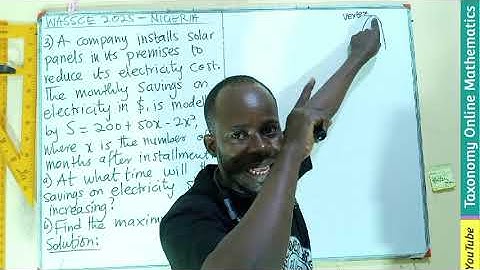 WASSCE 2025 - NIGERIA
3) A company installs solar
panels in its premises to
reduce its electricity cost.
The monthly savings on
electricity in $, is model
by S = 200 + 50x - 2x²,
where x is the number o
months after installment
a) At what time will the
savings on electricity
increasing?
b) Find the maximu
Solution:
vertex
Taxonomy Online Mathematics
YouTube